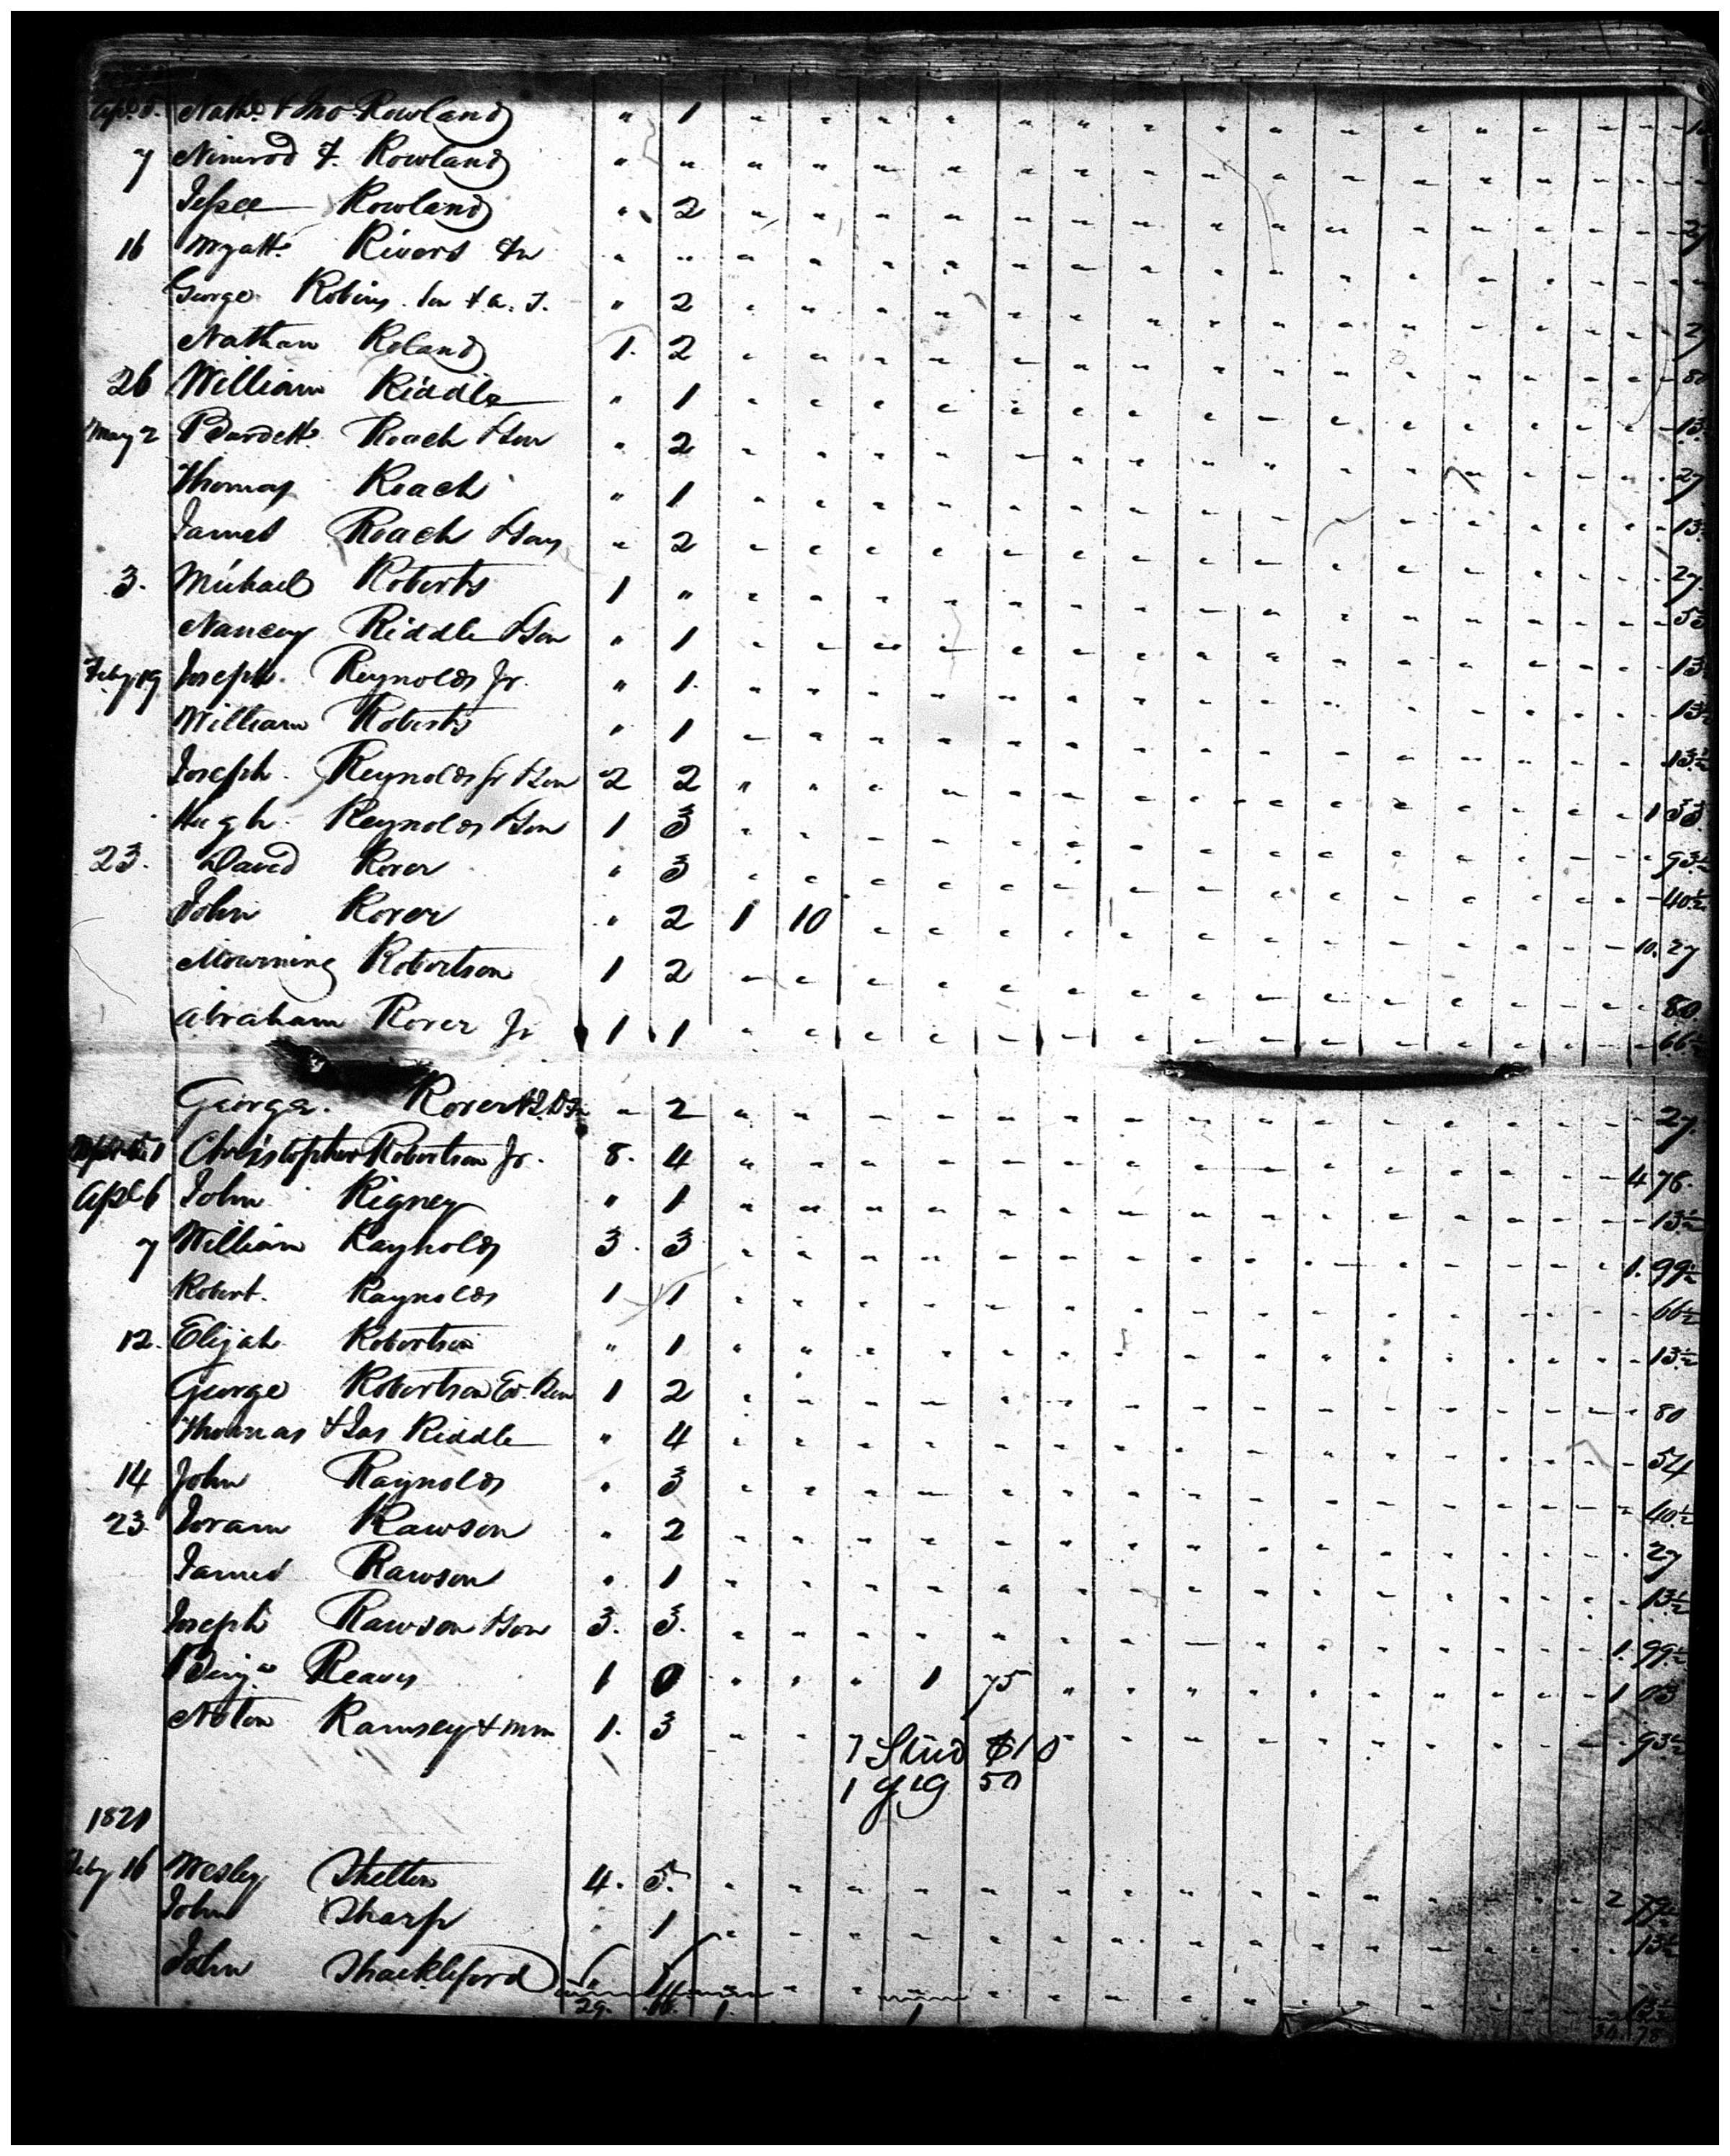 Apl. 5. Nathl. & Jno Rowland " 1
7 Nimrod F. Rowland " "
Jessee Rowland " 2 27
16 Wyatt Rivers " "
George Robins 2 27
Nathan Roland 1. 2 80
26 William Riddle " 1 13
May 2 Burdett Roach & Son " 2 27
Thomas Roach " 1 13
James Roach & Son " 2 27
3. Michael Roberts 1 " 53
Nancy Riddle & Son " 1 13
Feby 19 Joseph Reynolds Jr. " 1 13½
William Roberts " 1 13½
Joseph Reynolds Sr & Son 2 2 1 33
Hugh Reynolds & Son 1 3 93½
23. David Rorer " 3 40½
John Rorer " 2 1 10 10. 27
Mourning Robertson 1 2 80
Abraham Rorer Jr 1 1 66½
George Rorer " 2 27
Christopher Robertson Jr. 8. 4 4 78
Apl 6 John Rigney " 1 13½
7 William Raynolds 3. 3 1. 99½
Robert. Raynolds 1 1 66½
12. Elijah Robertson " 1 13½
George Robertson 1 2 80
Thomas & Jas Riddle " 4 54
14 John Raynolds " 3 40½
23 Joram Rawson " 2 27
James Rawson " 1 13½
Joseph Rawson & Son 3. 3. 1. 99½
Benja Reaves 1 0 1 75 1
Noton Ramsey & Wm 1. 3 93½
1 Stud $10
1 Gig 50
1820
Feby 16 Wesley Shelton 4. 5. 2
John Sharp " 1 13½
John Shackleford " 13½
29. 1. 1